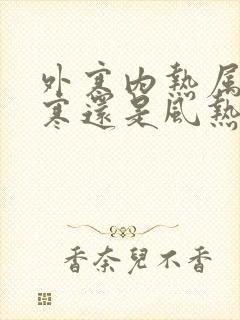 外寒內熱屬
寒還是風熱
香奈兒不香